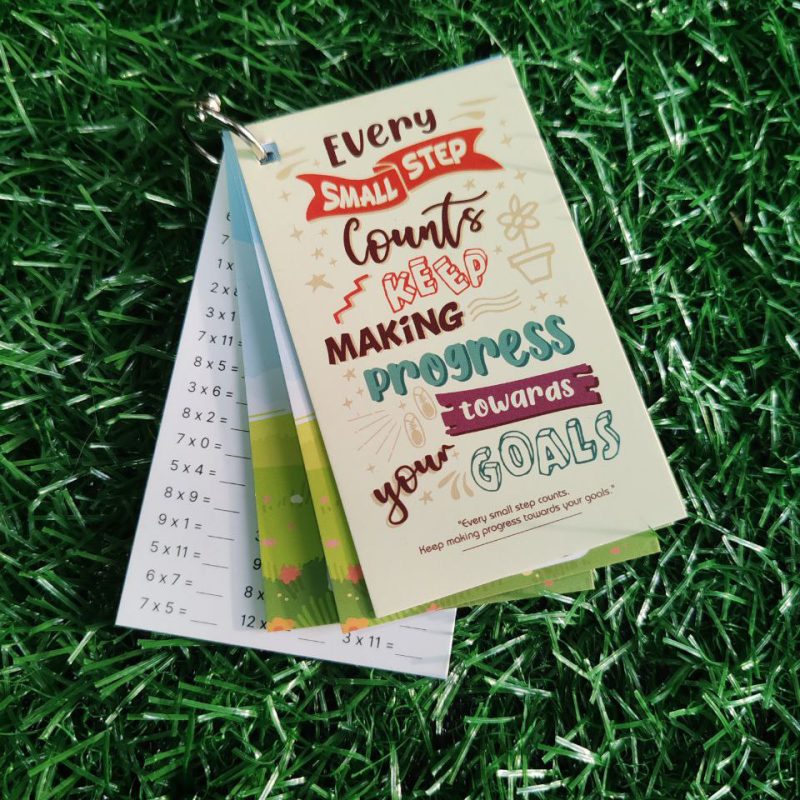 EVERY
SMALL STEP
Counts
KEEP
MAKING
PROGRESS
towards
your GOALS
"Every small step counts.
Keep making progress towards your goals."
1 x
2 x
3 x 1
7 x 11
8 x 5 =
3 x 6 = __
8 x 2 = __
7 x 0 = __
5 x 4 = __
8 x 9 = __
9 x 1 = __
5 x 11 = __
6 x 7 = __
7 x 5 = __
12 x
3 x 11 = __